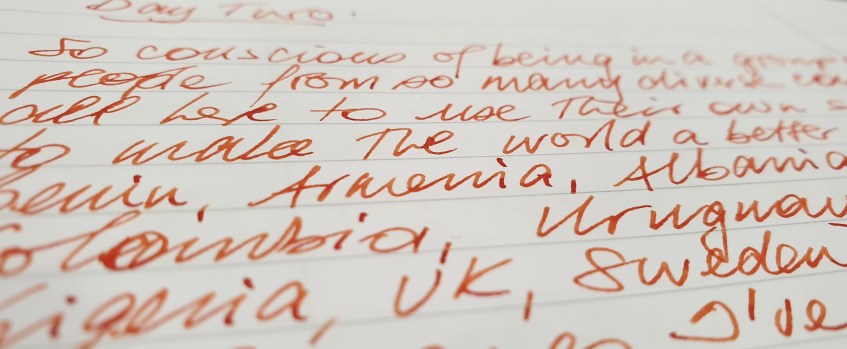 Day Two.
So conscious of being in a group
people from so many diverse
all here to use their own
to make the world a better
Benin, Armenia, Albania
Colombia, Uruguay
Nigeria, UK, Sweden
I've